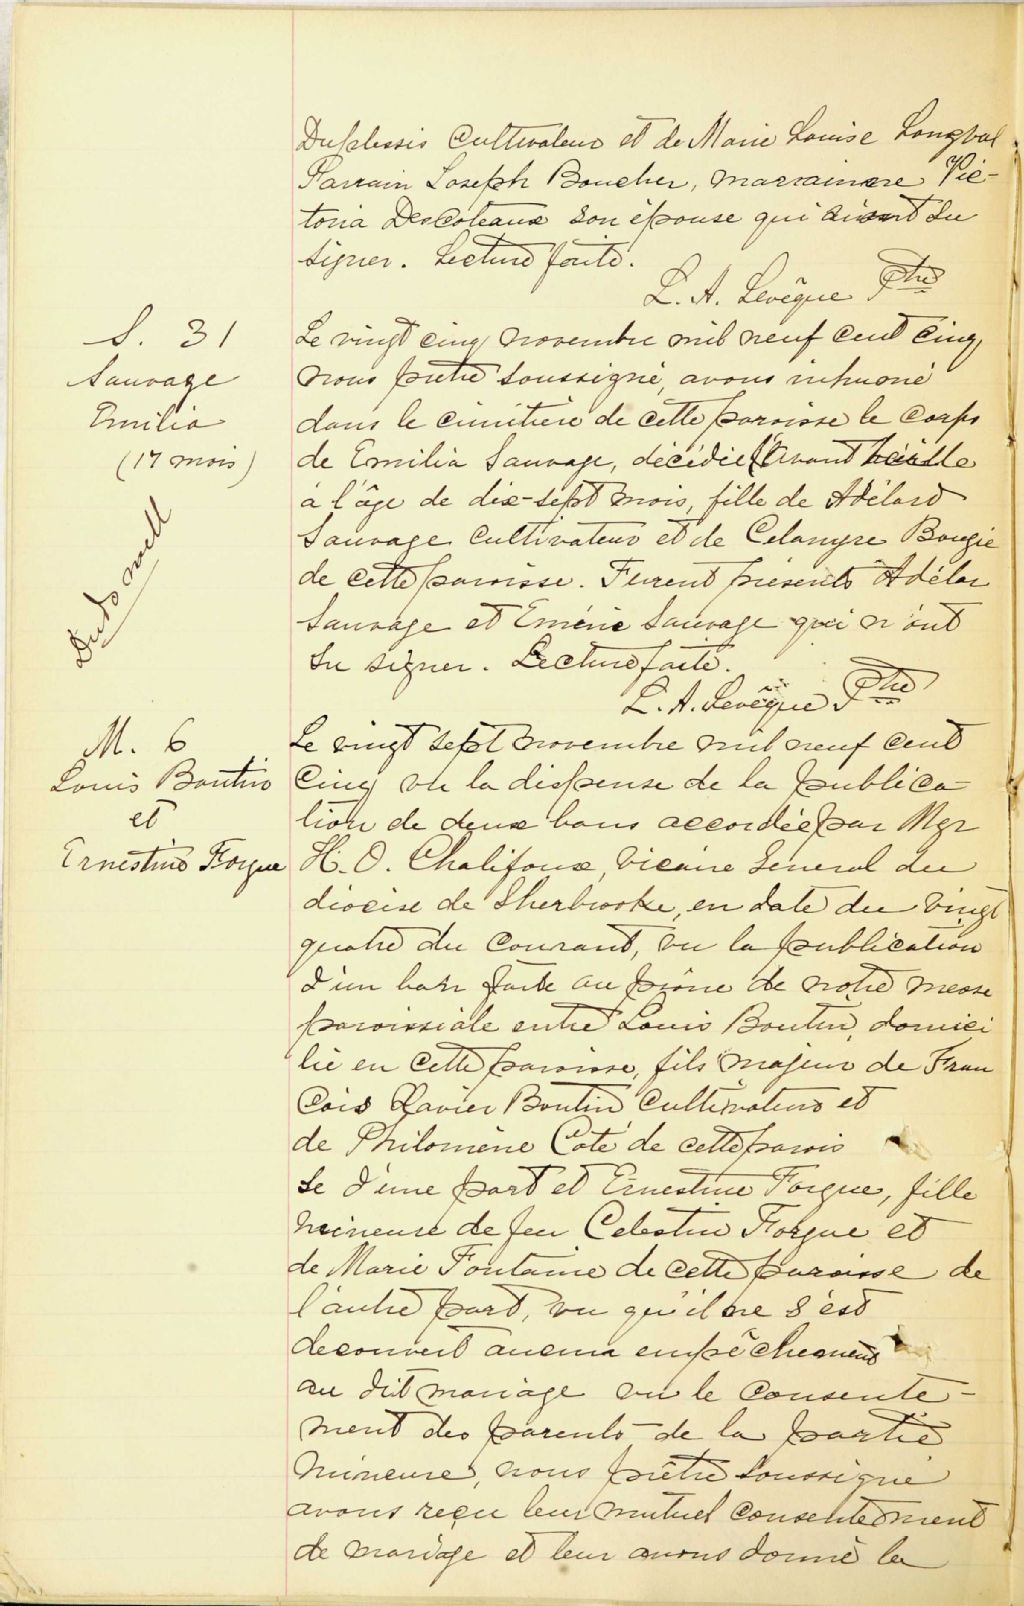 Duplessis cultivateur et de Marie Louise Longval
Parrain Joseph Boucher, marraine Vic-
toria Descoteaux son épouse qui su
signer. Lecture faite.
L. A. Levêque Ptre
S. 31
Sauvage
Emilia
(17 mois)
Le vingt cinq novembre mil neuf cent cinq
nous prêtre soussigné, avons inhumé
dans le cimitière de cette paroisse le corps
de Emilia Sauvage, décédée l'avant veille
à l'âge de dix-sept mois, fille de Adélard
Sauvage cultivateur et de Celanyre Bougie
de cette paroisse. Furent présents Adélar
Sauvage et Eméric Sauvage qui n'ont
su signer. Lecture faite.
L. A. Levêque Ptre
M. 6
Louis Boutin
et
Ernestine Forgue
Le vingt sept novembre mil neuf cent
cinq vu la dispense de la publica
tion de deux bans accordée par Mgr
H. O. Chalifoux, vicaire General du
diocèse de Sherbrooke, en date du vingt
quatre du courant, vu la publication
d'un ban faite au prône de notre messe
paroissiale entre Louis Boutin, domici
lié en cette paroisse, fils majeur de Fran
cois Xavier Boutin cultivateur et
de Philomène Coté de cette parois
se d'une part et Ernestine Forgue, fille
mineure de feu Celestin Forgue et
de Marie Fontaine de cette paroisse de
l'autre part, vu qu'il ne s'est
decouvert aucun empêchement
au dit mariage vu le consente-
ment des parents de la partie
mineure, nous prêtre soussigné
avons reçu leur mutuel consentement
de mariage et leur avons donné la